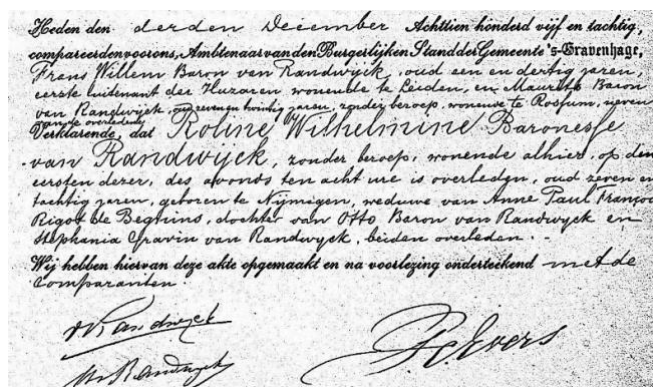 Heden den derden December Achttien honderd vijf en tachtig,
compareerden voor ons, Ambtenaar van den Burgerlijken Stand der Gemeente 's-Gravenhage,
Frans Willem Baron van Randwijck, oud een en dertig jaren,
eerste luitenant der Huzaren wonende te Leiden, en Maurits Baron
van Randwijck, oud zeven en twintig jaren, zonder beroep, wonende te Rossum, neven
van de overledene
Verklarende, dat Roline Wilhelmine Baronesse
van Randwijck, zonder beroep, wonende alhier, op den
eersten dezer, des avonds ten acht ure is overleden, oud zeven en
tachtig jaren, geboren te Nijmegen, weduwe van Anne Paul François
Rigot de Begnins, dochter van Otto Baron van Randwyck en
Stephania Gravin van Randwyck, beiden overleden.
Wij hebben hiervan deze akte opgemaakt en na voorlezing onderteekend met de
Comparanten.
Randwyck
M Randwyck
Evers